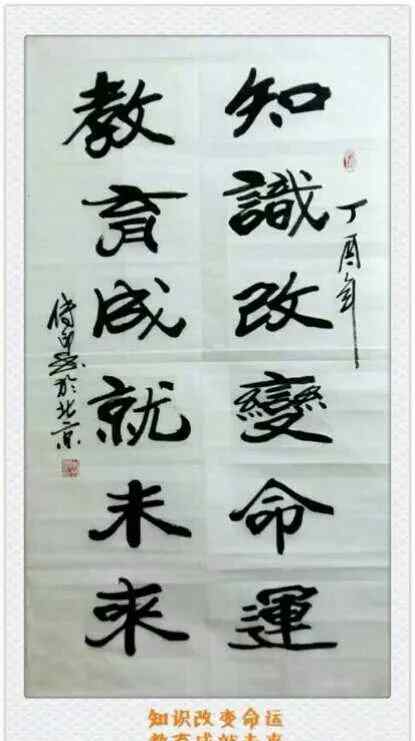 丁酉年
知識改變命運
教育成就未來
於北京
知识改变命运
教育成就未来